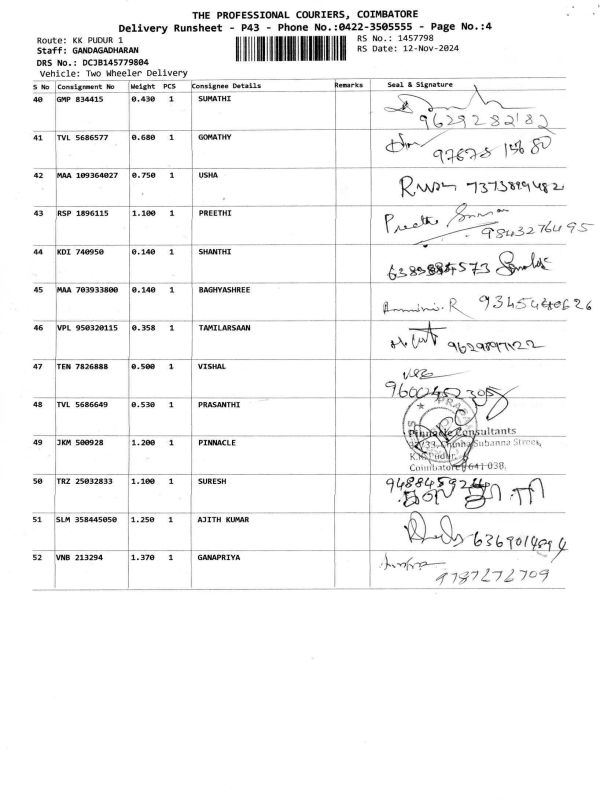 THE PROFESSIONAL COURIERS, COIMBATORE
Delivery Runsheet - P43 - Phone No.:0422-3505555 - Page No.:4
Route: KK PUDUR 1
RS No.: 1457798
Staff: GANDAGADHARAN
RS Date: 12-Nov-2024
DRS No.: DCJB145779804
Vehicle: Two Wheeler Delivery
S No Consignment No Weight PCS Consignee Details Remarks Seal & Signature
40 GMP 834415 0.430 1 SUMATHI
9629282182
41 TVL 5686577 0.680 1 GOMATHY
42 MAA 109364027 0.750 1 USHA
7373899482
43 RSP 1896115 1.100 1 PREETHI
Preethi
9843276495
44 KDI 740950 0.140 1 SHANTHI
45 MAA 703933800 0.140 1 BAGHYASHREE
R 9345440626
46 VPL 950320115 0.358 1 TAMILARSAAN
47 TEN 7826888 0.500 1 VISHAL
9600452305
48 TVL 5686649 0.530 1 PRASANTHI
49 JKM 500928 1.200 1 PINNACLE
Pinnacle Consultants
Subanna Street,
K.K. Pudur,
Coimbatore - 641 038.
50 TRZ 25032833 1.100 1 SURESH
51 SLM 358445050 1.250 1 AJITH KUMAR
52 VNB 213294 1.370 1 GANAPRIYA
9787272709